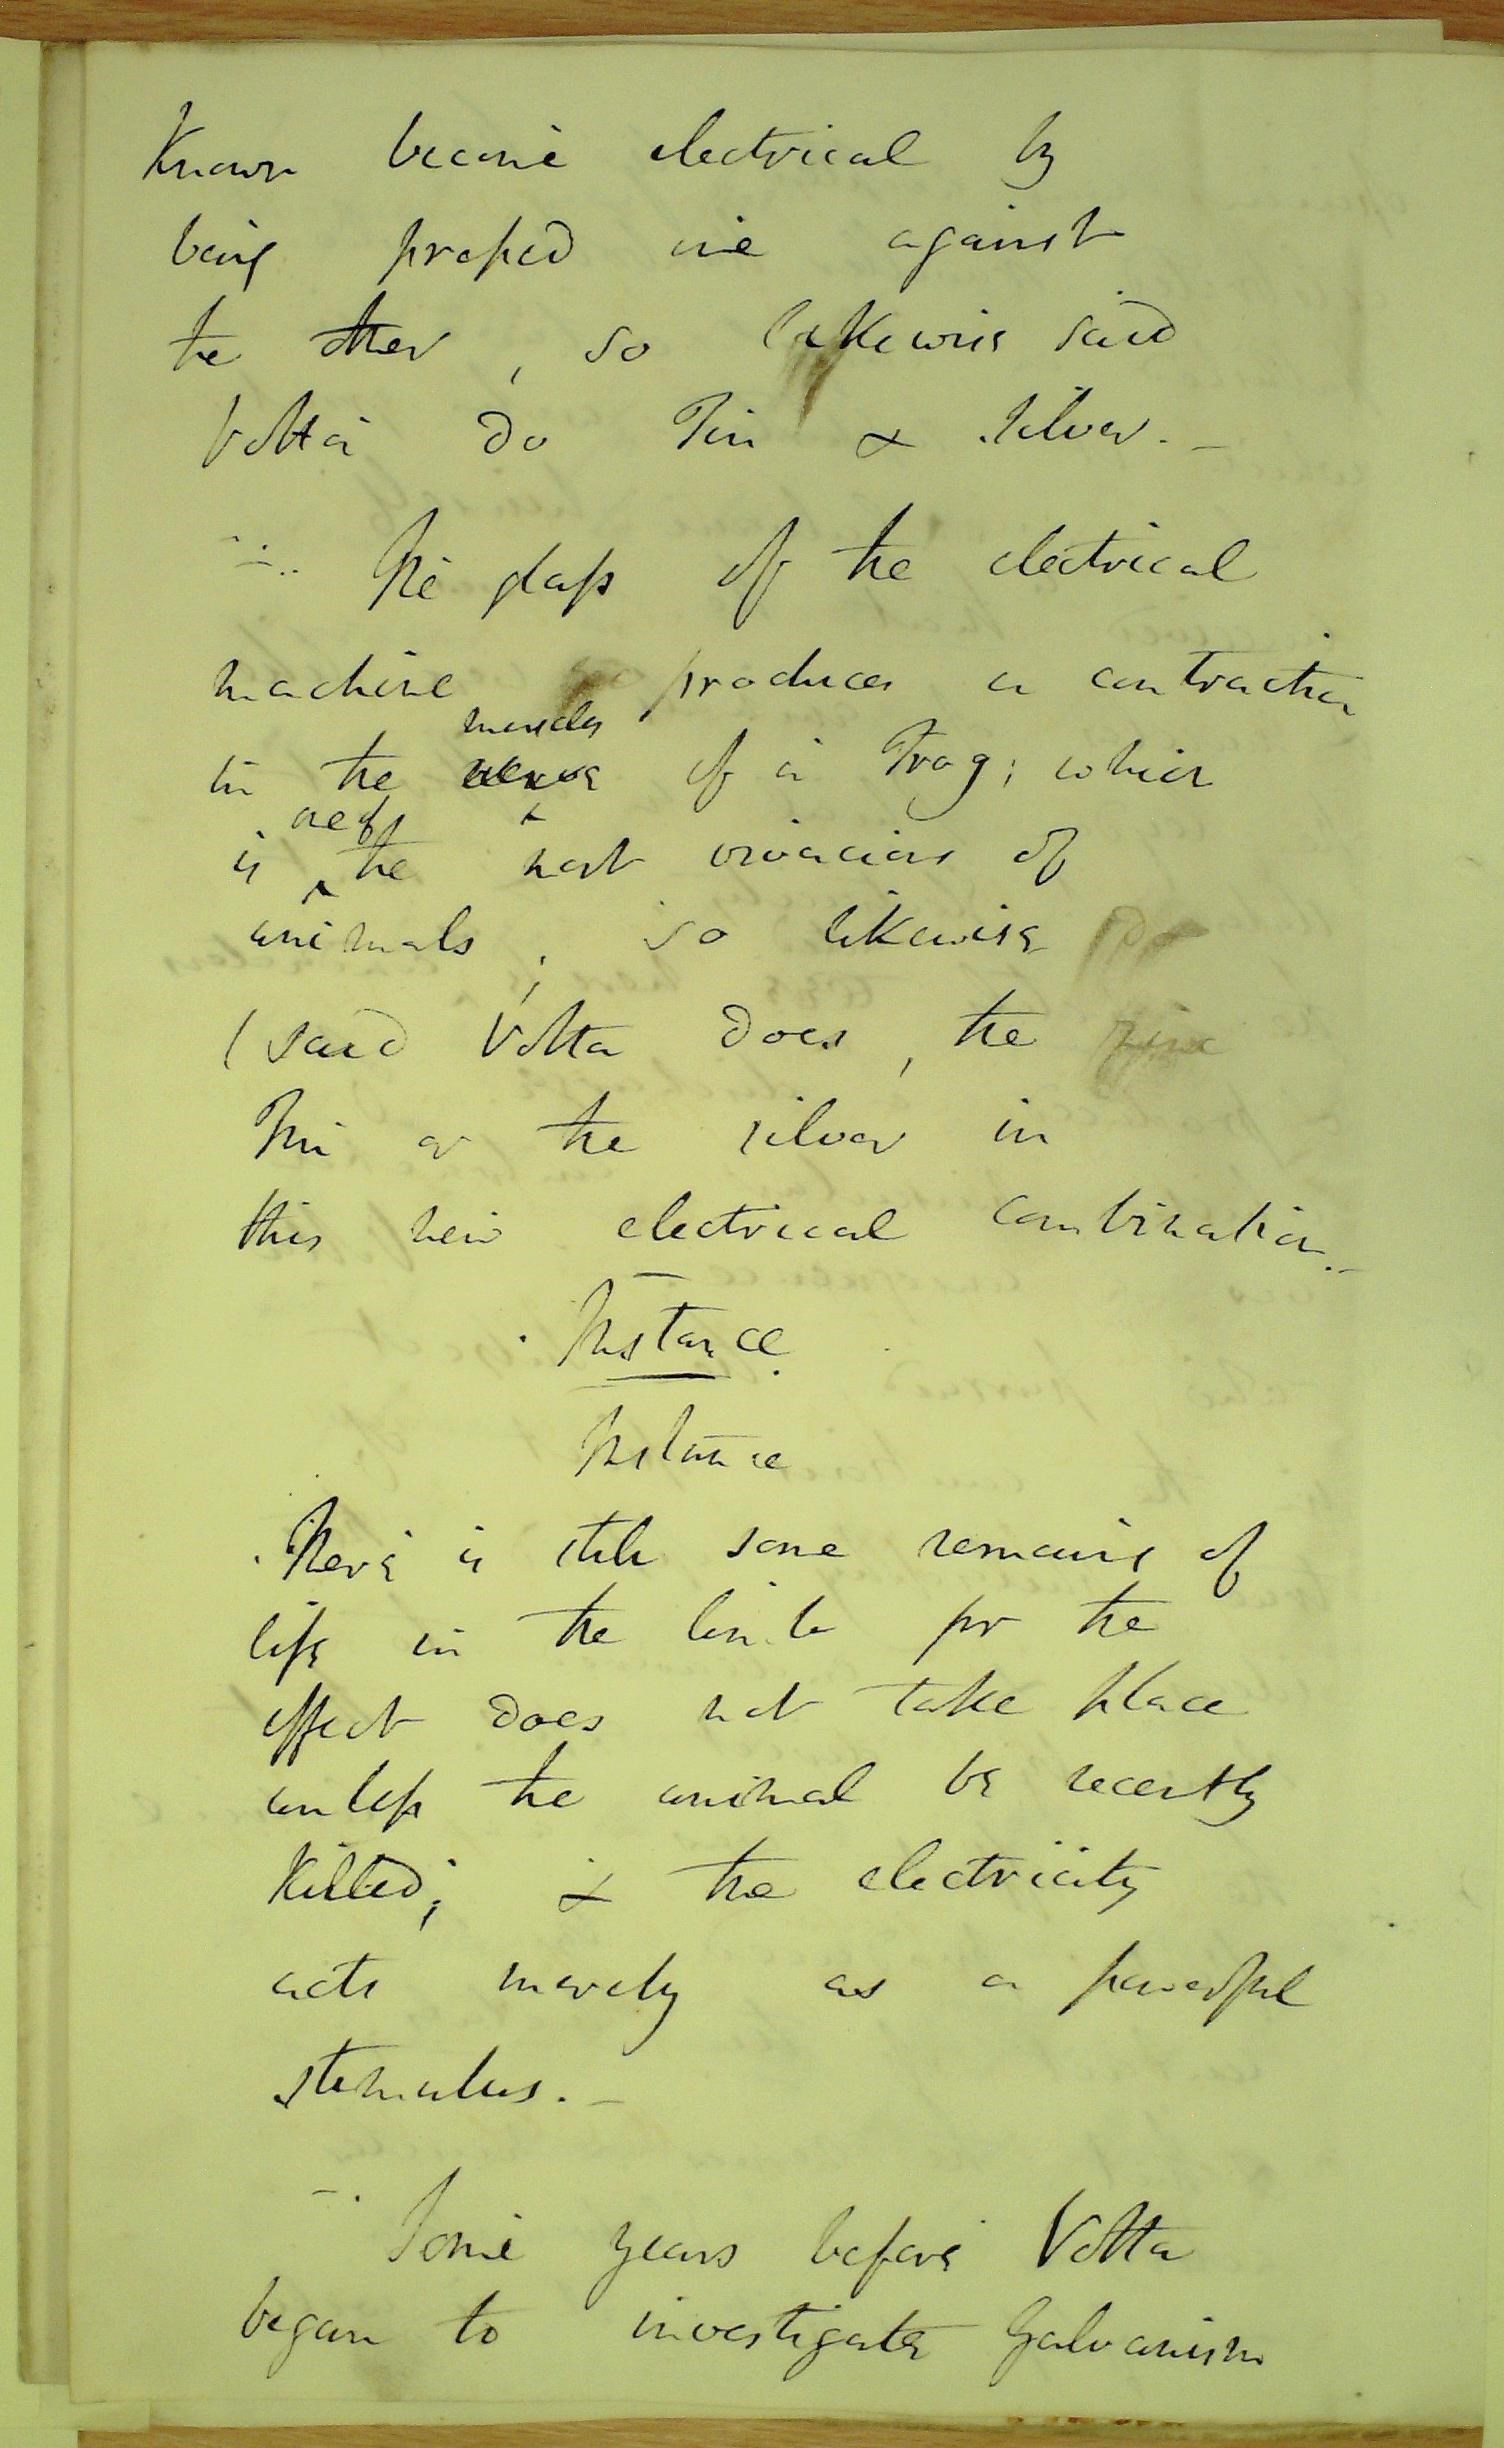 known become electrical by
being pressed one against
the other, so likewise said
Volta do Tin & Silver. _
The glass of the electrical
machine produces a contraction
muscles
in the nerves of a Frog; which
one of
is the most vivacious of
animals; so likewise
(said Volta does, the zinc
Tin or the silver in
this new electrical combination._
Instance.
Instance
There is still some remains of
life in the limb for the
effect does not take place
unless the animal be recently
killed; & the electricity
acts merely as a powerful
stimulus. _
Some years before Volta
began to investigate Galvanism